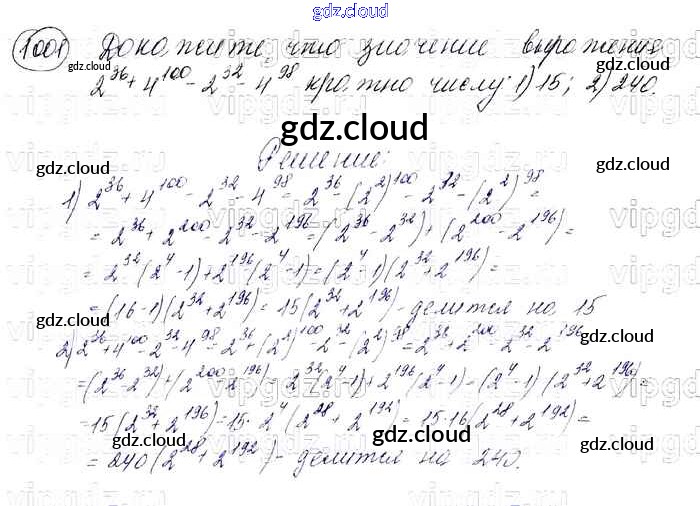 gdz.cloud
1001 Докажите, что значение выражения
2^36 + 4^100 - 2^32 - 4^98 кратно числу: 1) 15; 2) 240.
gdz.cloud
Решение:
1) 2^36 + 4^100 - 2^32 - 4^98 = 2^36 - (2^2)^100 - 2^32 - (2^2)^98 =
= 2^36 + 2^200 - 2^32 - 2^196 = (2^36 - 2^32) + (2^200 - 2^196) =
= 2^32 (2^4 - 1) + 2^196 (2^4 - 1) = (2^4 - 1)(2^32 + 2^196) =
= (16 - 1)(2^32 + 2^196) = 15(2^32 + 2^196) - делится на 15
2) 2^36 + 4^100 - 2^32 - 4^98 = 2^36 + (2^2)^100 - 2^32 - (2^2)^98 = 2^36 + 2^200 - 2^32 - 2^196
= (2^36 - 2^32) + (2^200 - 2^196) = 2^32 (2^4 - 1) + 2^196 (2^4 - 1) = (2^4 - 1)(2^32 + 2^196) =
= 15(2^32 + 2^196) = 15 · 2^4 (2^28 + 2^192) = 15 · 16(2^28 + 2^192) =
= 240(2^28 + 2^192) - делится на 240.
gdz.cloud